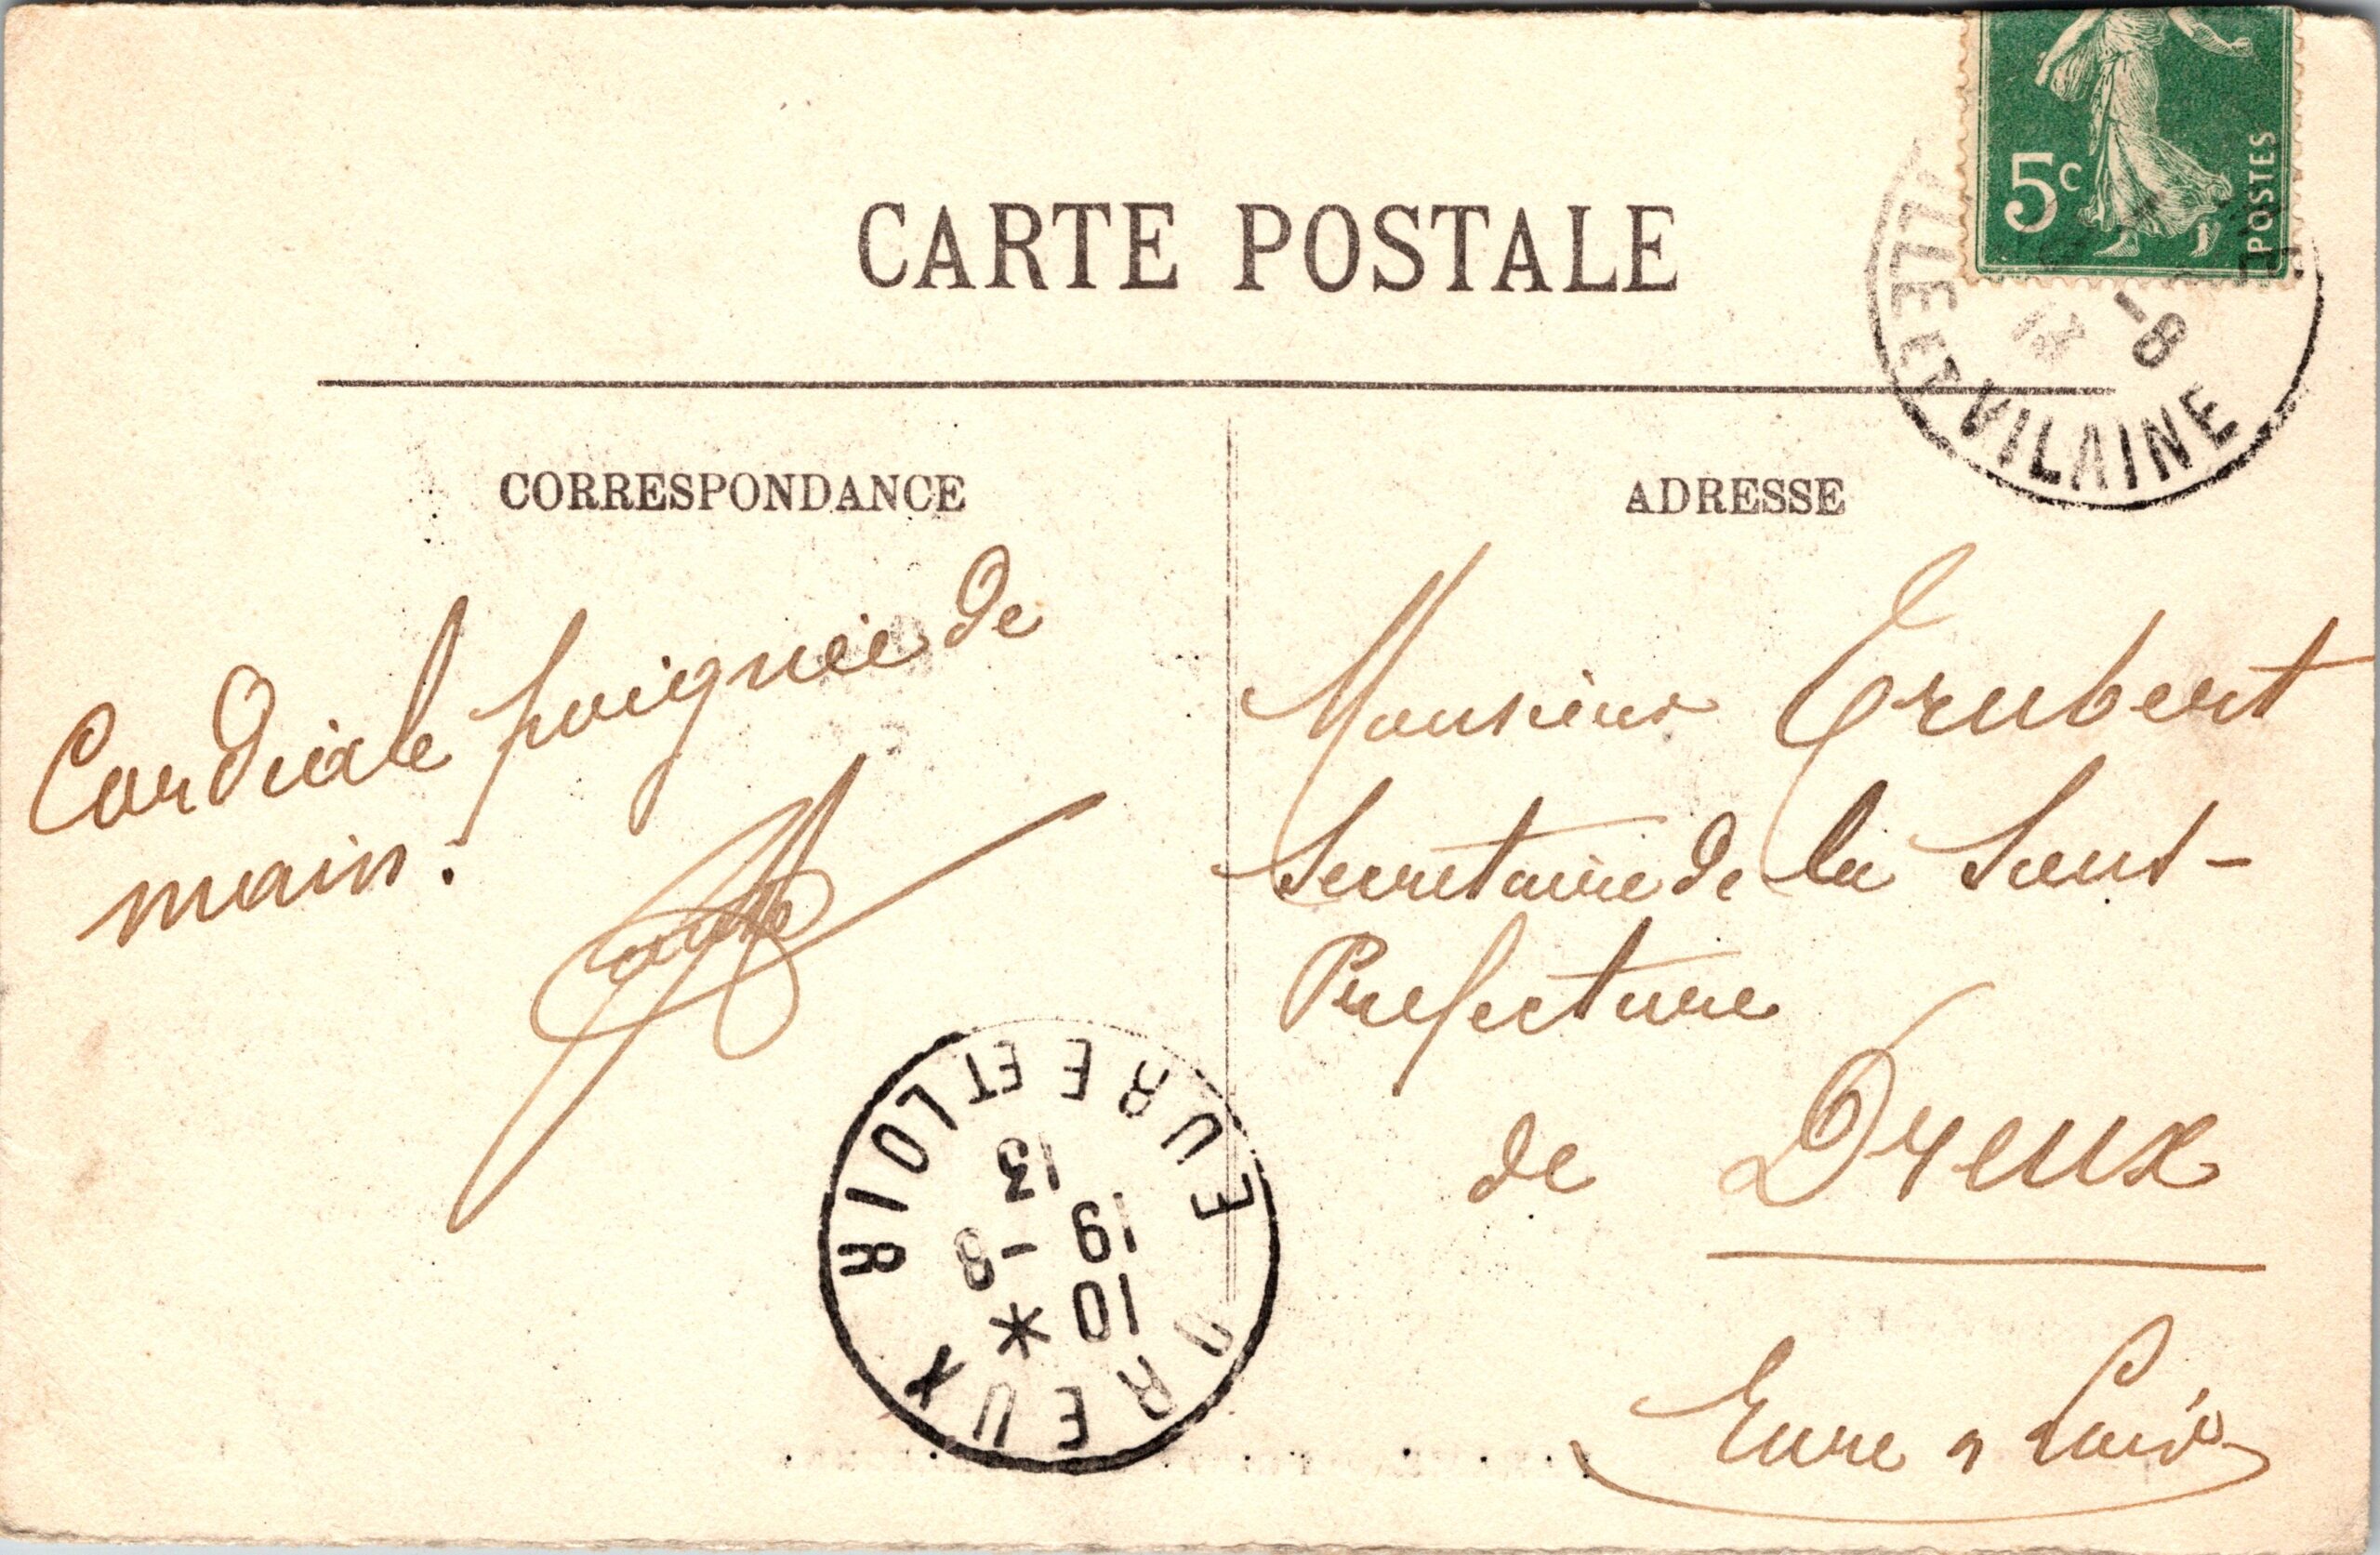 CARTE POSTALE
5c
POSTES
ILLE ET VILAINE
-8
13
CORRESPONDANCE
Cordiale poignée de
main.
ADRESSE
Monsieur Trubert
Secretaire de la Sous-
Prefecture
de Dreux
Eure & Loir
DREUX
*
10
19 -8
13
EURE ET LOIR